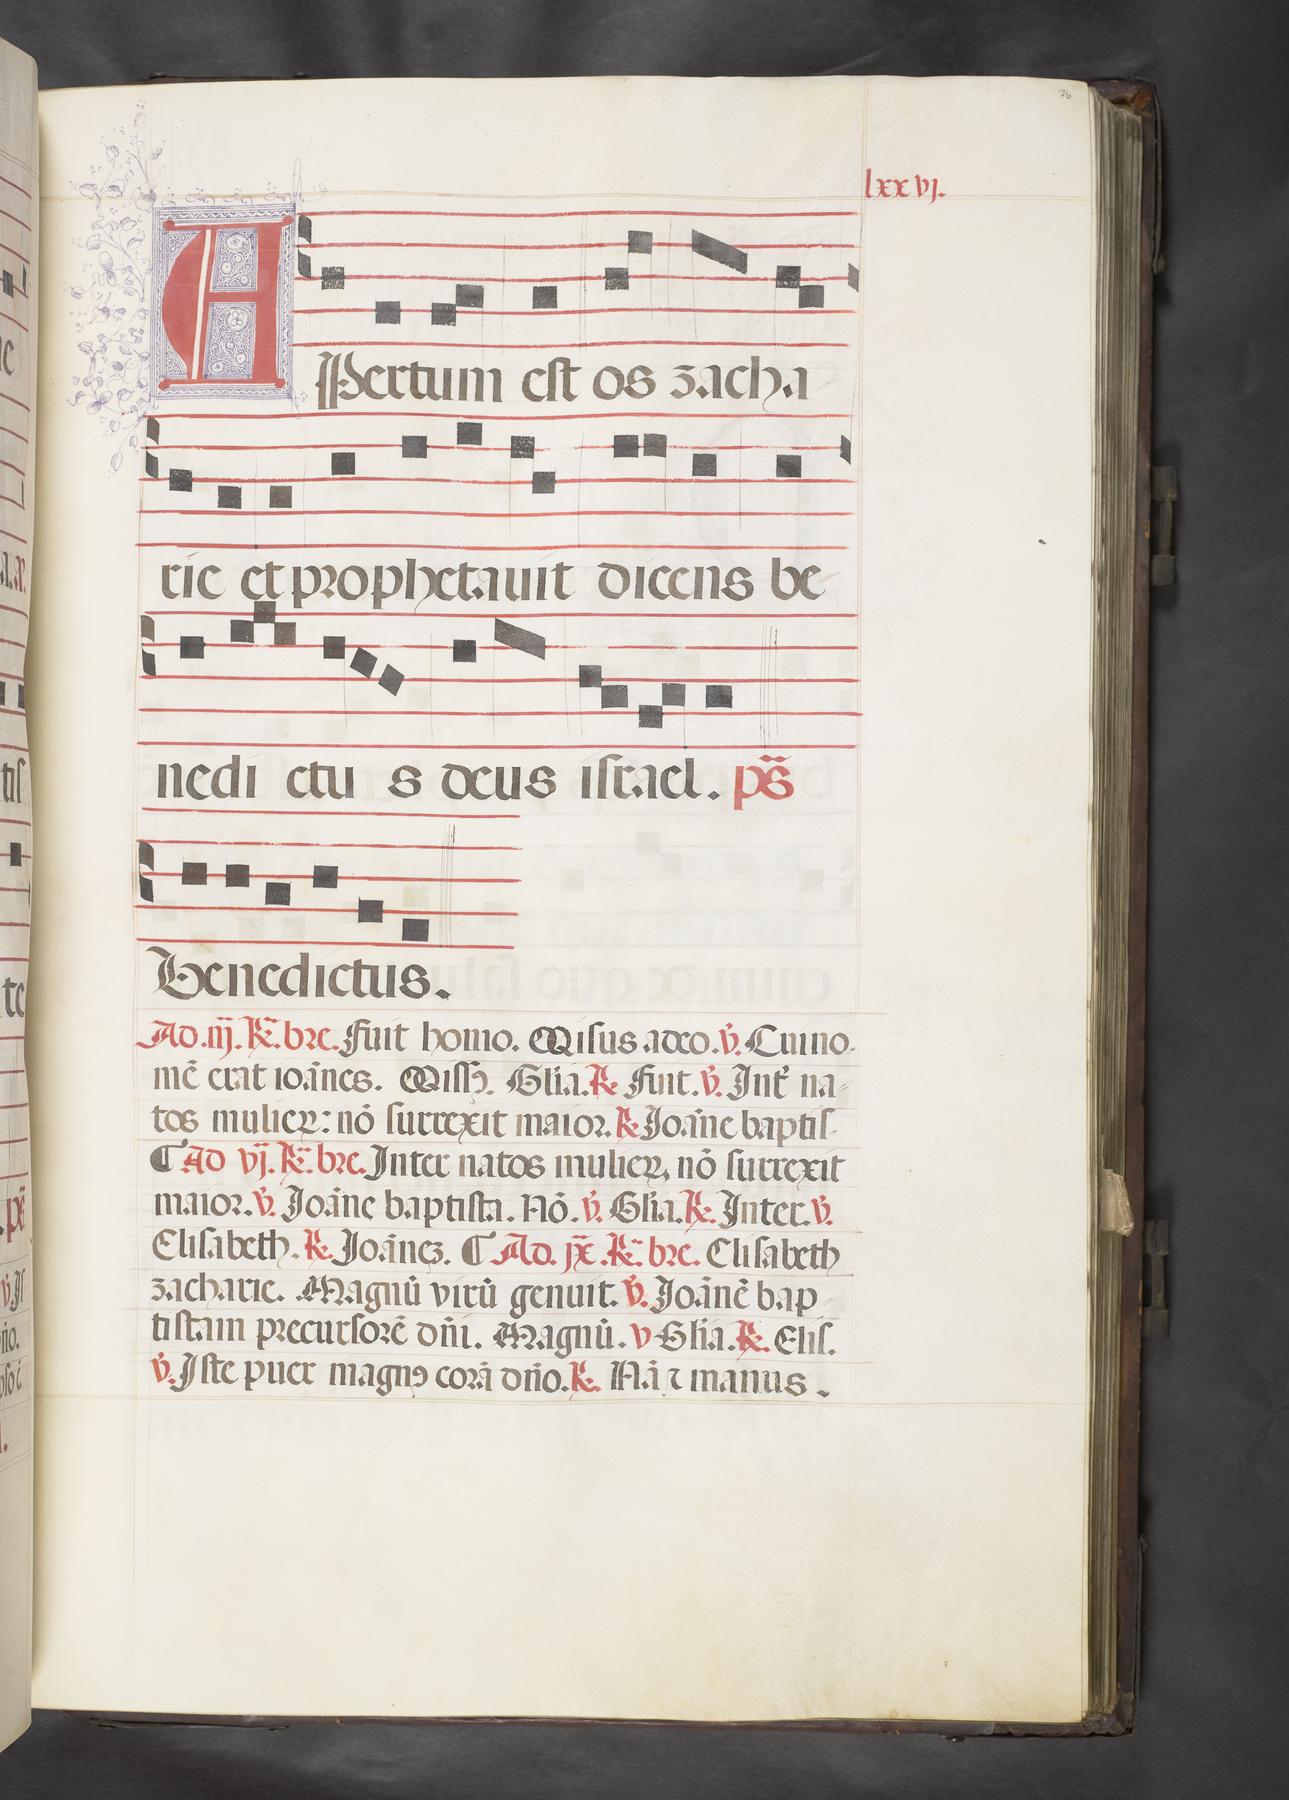 76
lxxvj.
APertum est os zacha
rie et prophetauit dicens be
nedi ctu s deus israel. ps̄
Benedictus.
Ad .iij. R̄. bre. Fuit homo. Missus a deo. v̄. Cui no
mē erat ioānes. Missꝰ. Gl̄ia. R. Fuit. v̄. Int̄ na
tos mulieꝝ: nō surrexit maior. R. Joāne baptis
¶ Ad vj. R̄. bre. Inter natos mulieꝝ, nō surrexit
maior. v̄. Joāne baptista. Nō. v̄. Gl̄ia. R. Inter. v̄.
Elisabeth. R. Joāneꝫ. ¶ Ad. jx. R̄. bre. Elisabeth
zacharie. Magnū virū genuit. v̄. Joānē bap
tistam precursorē dn̄i. Magnū. v Gl̄ia. R. Elis.
v̄. Iste puer magnꝰ corā dn̄o. R. Nā ⁊ manus.